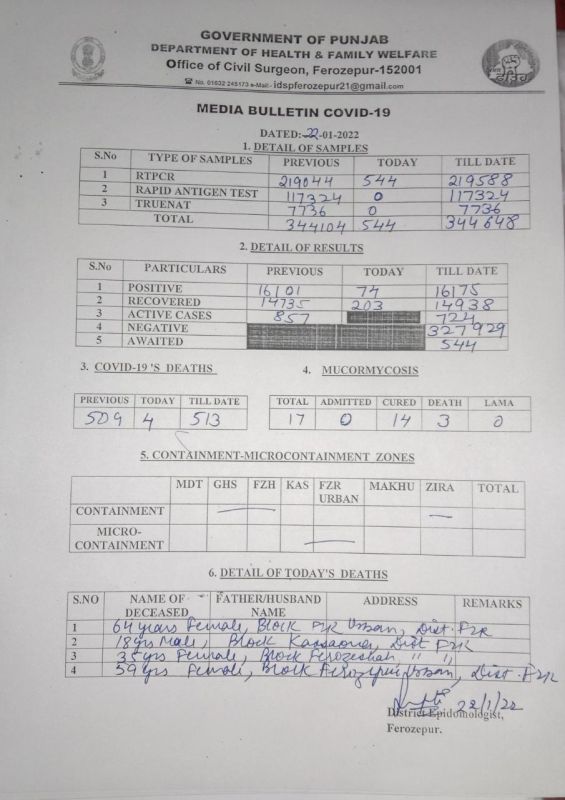 GOVERNMENT OF PUNJAB
DEPARTMENT OF HEALTH & FAMILY WELFARE
Office of Civil Surgeon, Ferozepur-152001
☎ No. 01632 245173 e-Mail:- idspferozepur21@gmail.com
MEDIA BULLETIN COVID-19
DATED:-22-01-2022
1. DETAIL OF SAMPLES
S.No TYPE OF SAMPLES PREVIOUS TODAY TILL DATE
1 RTPCR 219044 544 219588
2 RAPID ANTIGEN TEST 117324 0 117324
3 TRUENAT 7736 0 7736
TOTAL 344104 544 344648
2. DETAIL OF RESULTS
S.No PARTICULARS PREVIOUS TODAY TILL DATE
1 POSITIVE 16101 74 16175
2 RECOVERED 14735 203 14938
3 ACTIVE CASES 857 724
4 NEGATIVE 327929
5 AWAITED 544
3. COVID-19'S DEATHS 4. MUCORMYCOSIS
PREVIOUS TODAY TILL DATE TOTAL ADMITTED CURED DEATH LAMA
509 4 513 17 0 14 3 0
5. CONTAINMENT-MICROCONTAINMENT ZONES
MDT GHS FZH KAS FZR URBAN MAKHU ZIRA TOTAL
CONTAINMENT
MICRO-
CONTAINMENT
6. DETAIL OF TODAY'S DEATHS
S.NO NAME OF DECEASED FATHER/HUSBAND NAME ADDRESS REMARKS
1 64 years Female, Block FZR Urban, Dist. FZR
2 18yrs Male, Block Kassoana, Dist FZR
3 35yrs Female, Block Ferozeshah " ",
4 59yrs Female, Block Ferozepur Urban, Dist. FZR
22/1/22
District Epidomologist,
Ferozepur.